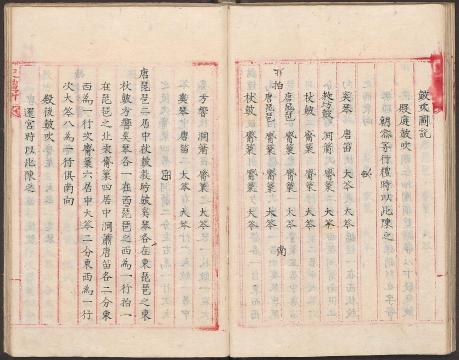 鼓吹圖說
殿庭鼓吹
朝參等行禮時以此陳之
奚琴 唐笛 大笒 大笒
教坊鼓 洞簫 觱篥 大笒
杖鼓 觱篥 觱篥 大笒
唐琵琶 觱篥 觱篥 大笒
北 拍
唐琵琶 觱篥 觱篥 大笒 南
杖鼓 觱篥 觱篥 大笒
方響 洞簫 觱篥 大笒
奚琴 唐笛 大笒 大笒
唐琵琶二居中杖鼓教坊鼓奚琴各在東琵琶之東
杖鼓方響奚琴各一在西琵琶之西為一行拍一
在琵琶之北次觱篥四居中洞簫唐笛各二分東
西為一行次觱篥六居中大笒二分東西為一行
次大笒八為一行俱南向
殿後鼓吹
還宮時以此陳之